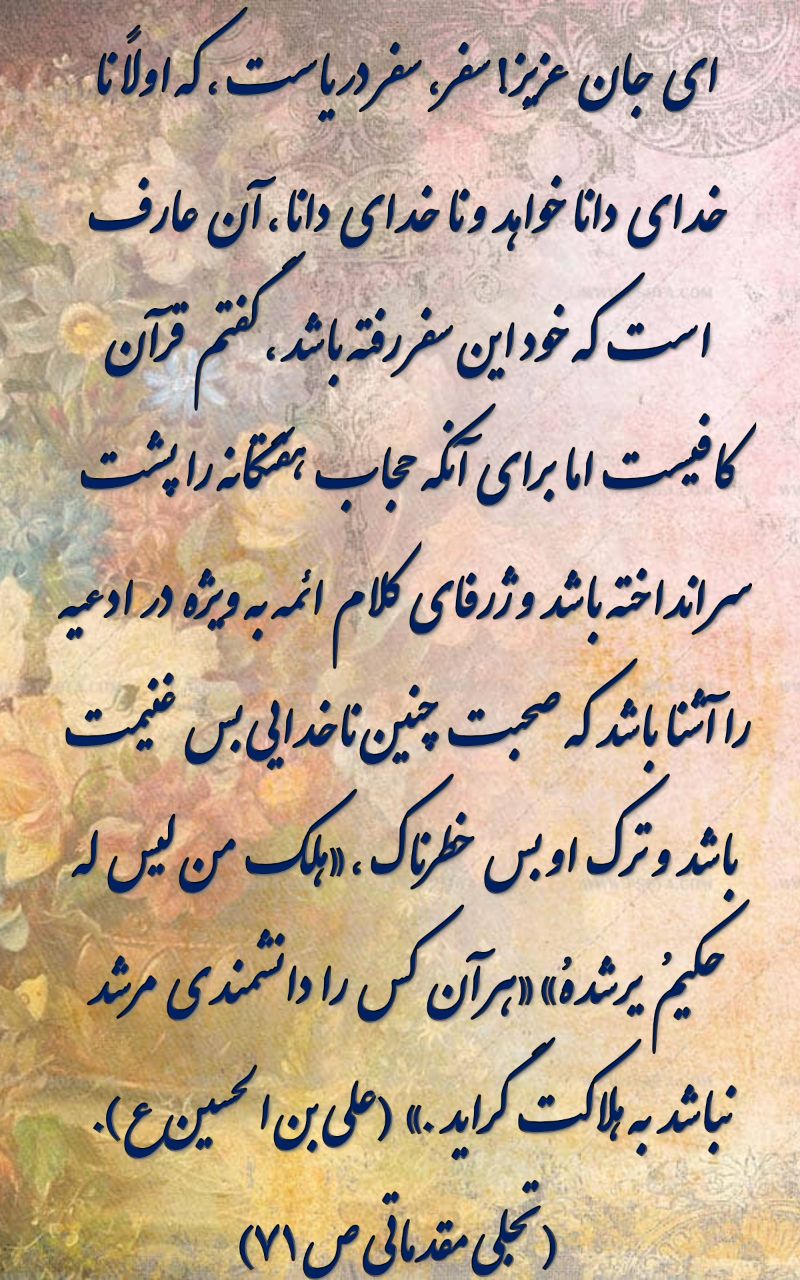 ای جان عزیز! سفر، سفر دریاست، که اولاً نا
خدای دانا خواهد و نا خدای دانا، آن عارف
است که خود این سفر رفته باشد، گفتم قرآن
کافیست اما برای آنکه حجاب هفتگانه را پشت
سر انداخته باشد و ژرفای کلام ائمه به ویژه در ادعیه
را آشنا باشد که صحبت چنین ناخدایی بس غنیمت
باشد و ترک او بس خطرناک، «هلک من لیس له
حکیمُ یرشدهُ» «هر آن کس را دانشمندی مرشد
نباشد به هلاکت گراید.» (علی بن الحسین ع).
(تجلی مقدماتی ص ۷۱)